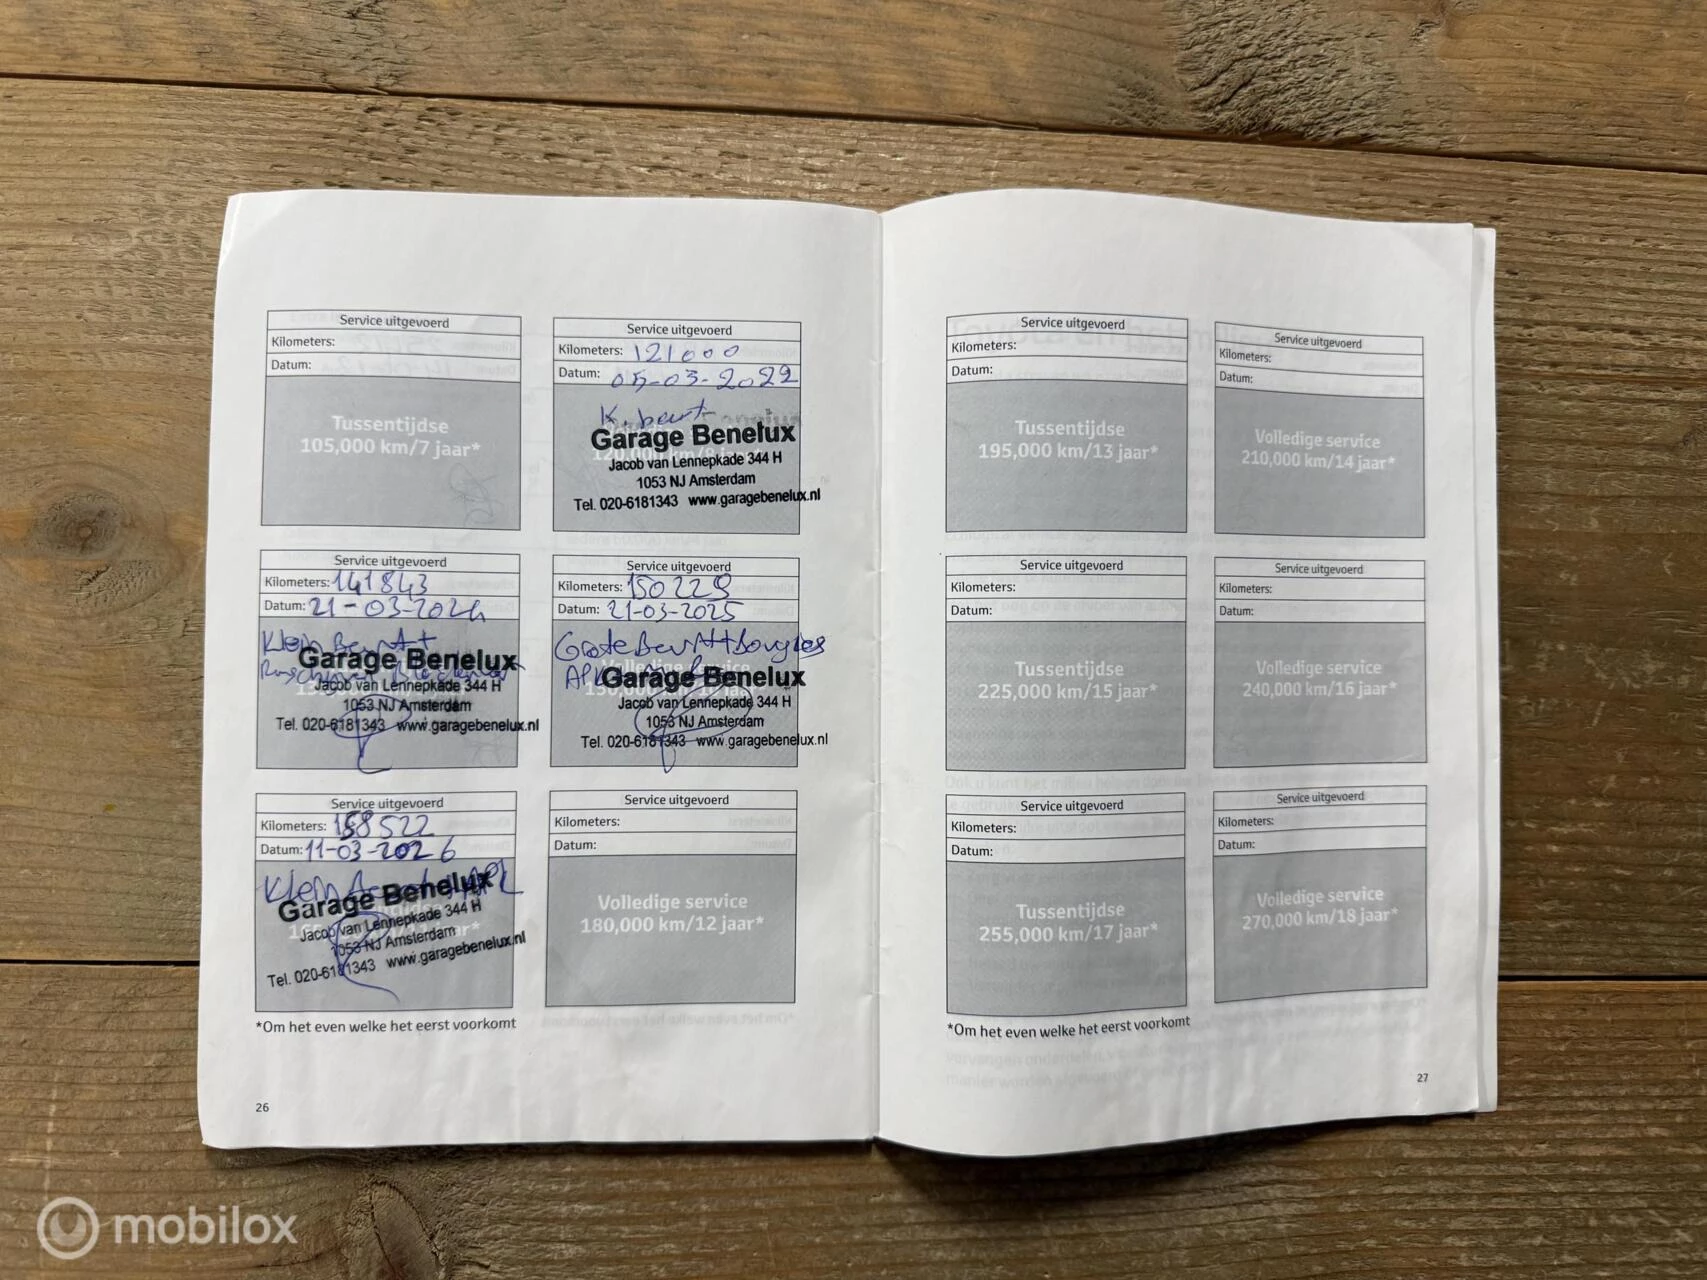 Service uitgevoerd
Kilometers:
Datum:
Tussentijdse
105,000 km/7 jaar*
Service uitgevoerd
Kilometers: 121000
Datum: 05-03-2022
K. beurt
Garage Benelux
120,000 km/8
Jacob van Lennepkade 344 H
1053 NJ Amsterdam
Tel. 020-6181343 www.garagebenelux.nl
Service uitgevoerd
Kilometers: 141843
Datum: 21-03-2024
Klein Beurt +
Garage Benelux
Jacob van Lennepkade 344 H
1053 NJ Amsterdam
Tel. 020-6181343 www.garagebenelux.nl
Service uitgevoerd
Kilometers: 150229
Datum: 21-03-2025
Grote Beurt + Bougies
Volledige service
APK
Garage Benelux
150,000 km/10 jaar*
Jacob van Lennepkade 344 H
1053 NJ Amsterdam
Tel. 020-6181343 www.garagebenelux.nl
Service uitgevoerd
Kilometers: 158522
Datum: 11-03-2026
Klein Beurt APK
Garage Benelux
Jacob van Lennepkade 344 H
1053 NJ Amsterdam
Tel. 020-6181343 www.garagebenelux.nl
Service uitgevoerd
Kilometers:
Datum:
Volledige service
180,000 km/12 jaar*
*Om het even welke het eerst voorkomt
26
Service uitgevoerd
Kilometers:
Datum:
Tussentijdse
195,000 km/13 jaar*
Service uitgevoerd
Kilometers:
Datum:
Volledige service
210,000 km/14 jaar*
Service uitgevoerd
Kilometers:
Datum:
Tussentijdse
225,000 km/15 jaar*
Service uitgevoerd
Kilometers:
Datum:
Volledige service
240,000 km/16 jaar*
Service uitgevoerd
Kilometers:
Datum:
Tussentijdse
255,000 km/17 jaar*
Service uitgevoerd
Kilometers:
Datum:
Volledige service
270,000 km/18 jaar*
*Om het even welke het eerst voorkomt
27
mobilox